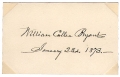 William Cullen Bryant
January 23d 1873.